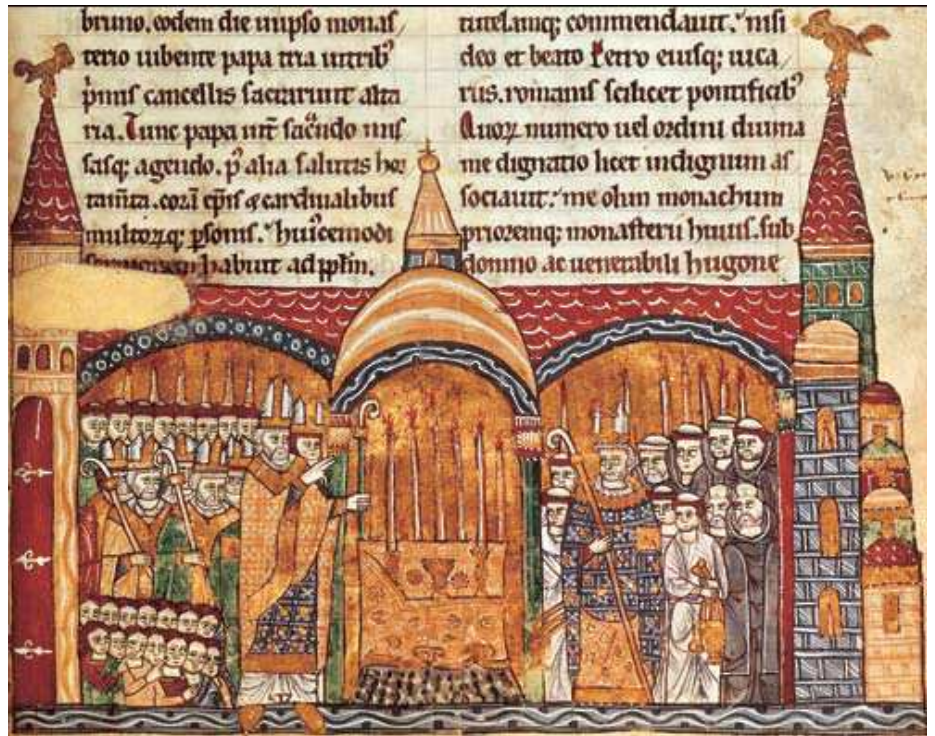 bruno. eodem die in ipso monas
terio iubente papa tria in tribꝰ
p̄mis cancellis sacrarunt alta
ria. Tunc papa int̄ sac̄ndo mis
sasq; agendo. p̄ alia salutis hor
tam̄ta. corā ep̄is & cardinalibus
multoꝝq; p̄sonis. huiꝰcemodi
habuit ad pp̄lm.
tutelamq; commendauit. nisi
deo et beato Petro eiusq; uica
riis. romanis scilicet pontificibꝰ
Quoꝝ numero uel ordini diuina
me dignatio licet indignum as
sociauit. me olim monachum
prioremq; monasterii huius. sub
domno ac uenerabili hugone